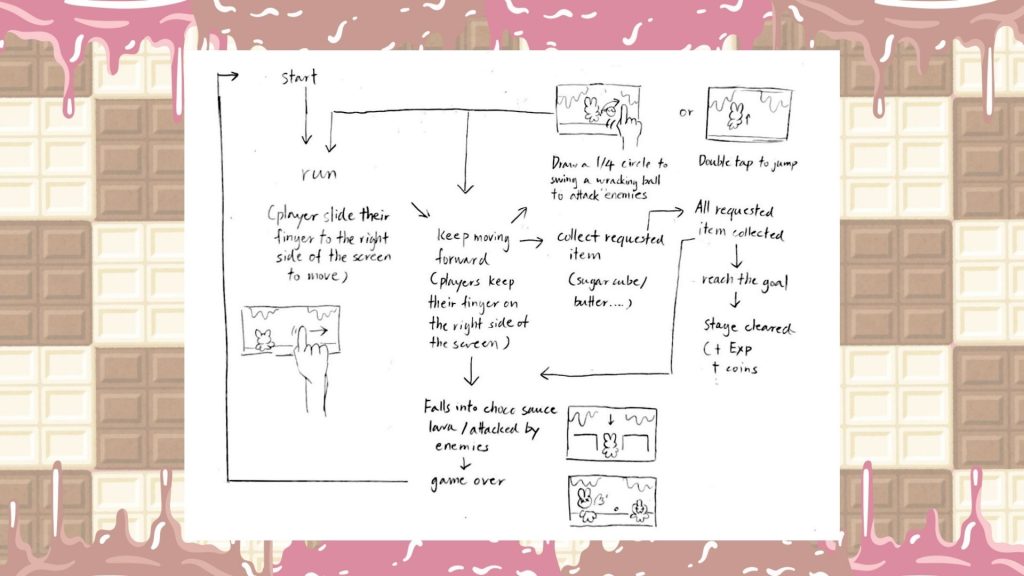 start
run
(player slide their
finger to the right
side of the screen
to move)
keep moving
forward
(players keep
their finger on
the right side of
the screen)
Draw a 1/4 circle to
swing a wracking ball
to attack enemies
or
Double tap to jump
collect requested
item
(sugar cube/
butter....)
All requested
item collected
reach the goal
Stage cleared
(+ Exp
+ coins
Falls into choco sauce
lava / attacked by
enemies
game over